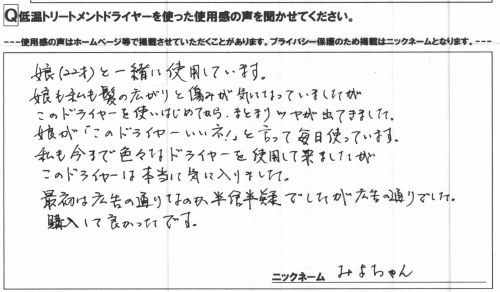 Q低温トリートメントドライヤーを使った使用感の声を聞かせてください。
---使用感の声はホームページ等で掲載させていただくことがあります。プライバシー保護のため掲載はニックネームとなります。---
娘(22才)と一緒に使用しています。
娘も私も髪の広がりと傷みが気になっていましたが
このドライヤーを使いはじめてから、まとまりツヤが出てきました。
娘が「このドライヤーいいネ!」と言って毎日使っています。
私も今まで色々なドライヤーを使用して来ましたが
このドライヤーは本当に気に入りました。
最初は広告の通りなのか半信半疑でしたが広告の通りでした。
購入して良かったです。
ニックネーム みよちゃん